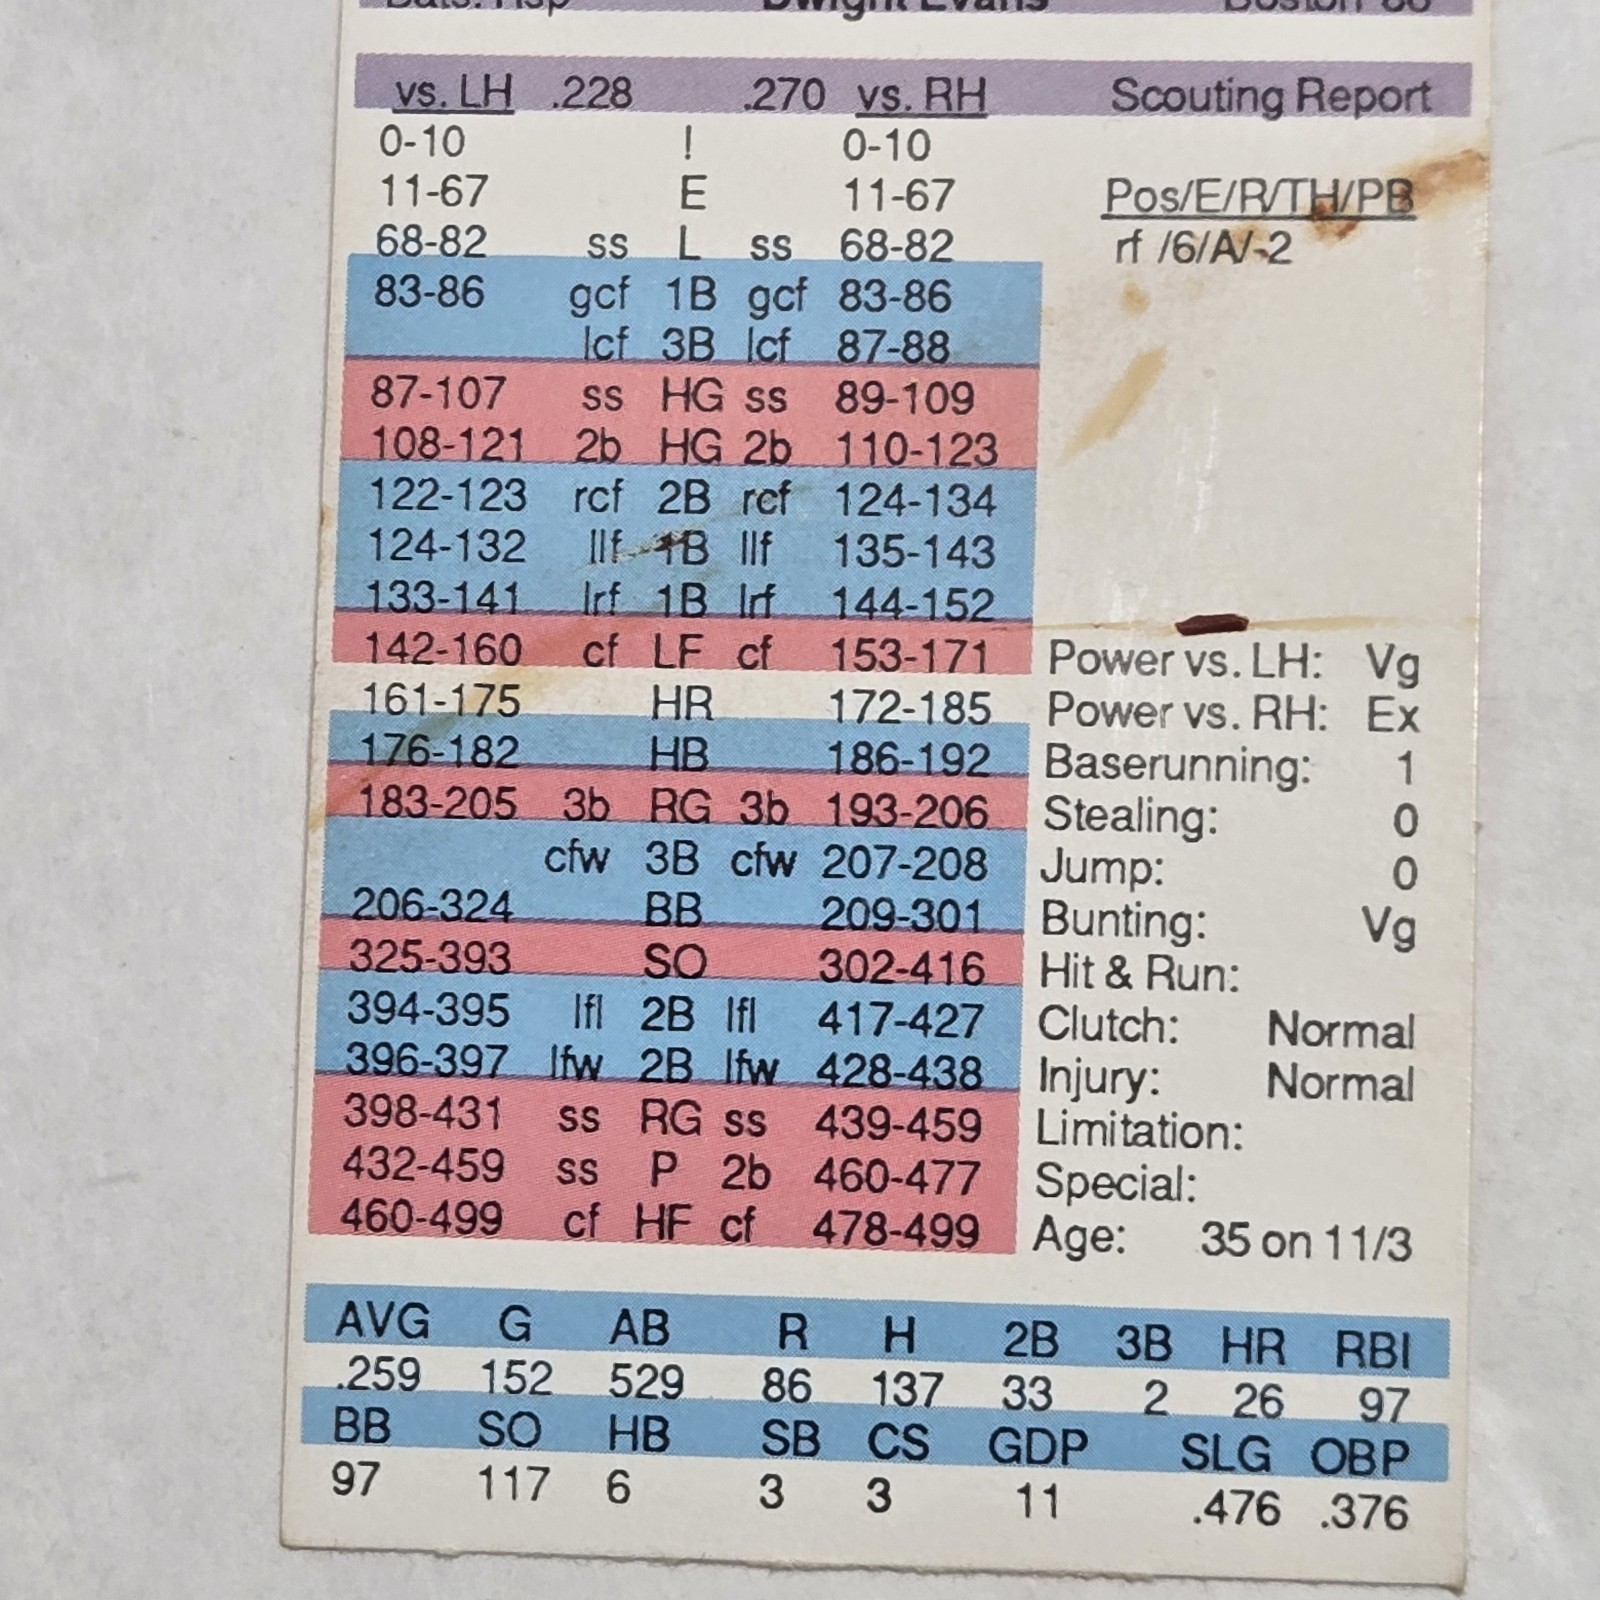 Bats: Rsp Dwight Evans Boston '86
vs. LH .228 .270 vs. RH Scouting Report
0-10 ! 0-10
11-67 E 11-67 Pos/E/R/TH/PB
68-82 ss L ss 68-82 rf /6/A/-2
83-86 gcf 1B gcf 83-86
lcf 3B lcf 87-88
87-107 ss HG ss 89-109
108-121 2b HG 2b 110-123
122-123 rcf 2B rcf 124-134
124-132 llf 1B llf 135-143
133-141 lrf 1B lrf 144-152
142-160 cf LF cf 153-171 Power vs. LH: Vg
161-175 HR 172-185 Power vs. RH: Ex
176-182 HB 186-192 Baserunning: 1
183-205 3b RG 3b 193-206 Stealing: 0
cfw 3B cfw 207-208 Jump: 0
206-324 BB 209-301 Bunting: Vg
325-393 SO 302-416 Hit & Run:
394-395 lfl 2B lfl 417-427 Clutch: Normal
396-397 lfw 2B lfw 428-438 Injury: Normal
398-431 ss RG ss 439-459 Limitation:
432-459 ss P 2b 460-477 Special:
460-499 cf HF cf 478-499 Age: 35 on 11/3
AVG G AB R H 2B 3B HR RBI
.259 152 529 86 137 33 2 26 97
BB SO HB SB CS GDP SLG OBP
97 117 6 3 3 11 .476 .376